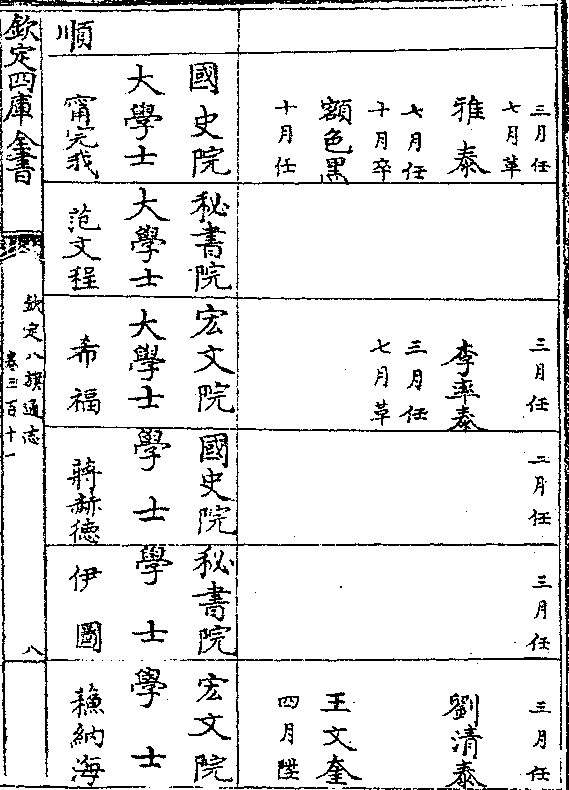 三月任
七月革
雅泰
七月任
十月卒
額色黑
十月任
三月任
李率泰
三月任
七月革
二月任
三月任
三月任
劉清泰
王文奎
四月陞
順
國史院
大學士
甯完我
秘書院
大學士
范文程
宏文院
大學士
希福
國史院
學士
蔣赫德
秘書院
學士
伊圖
宏文院
學士
蘇納海
欽定四庫全書
欽定八旗通志
卷三百十一
八